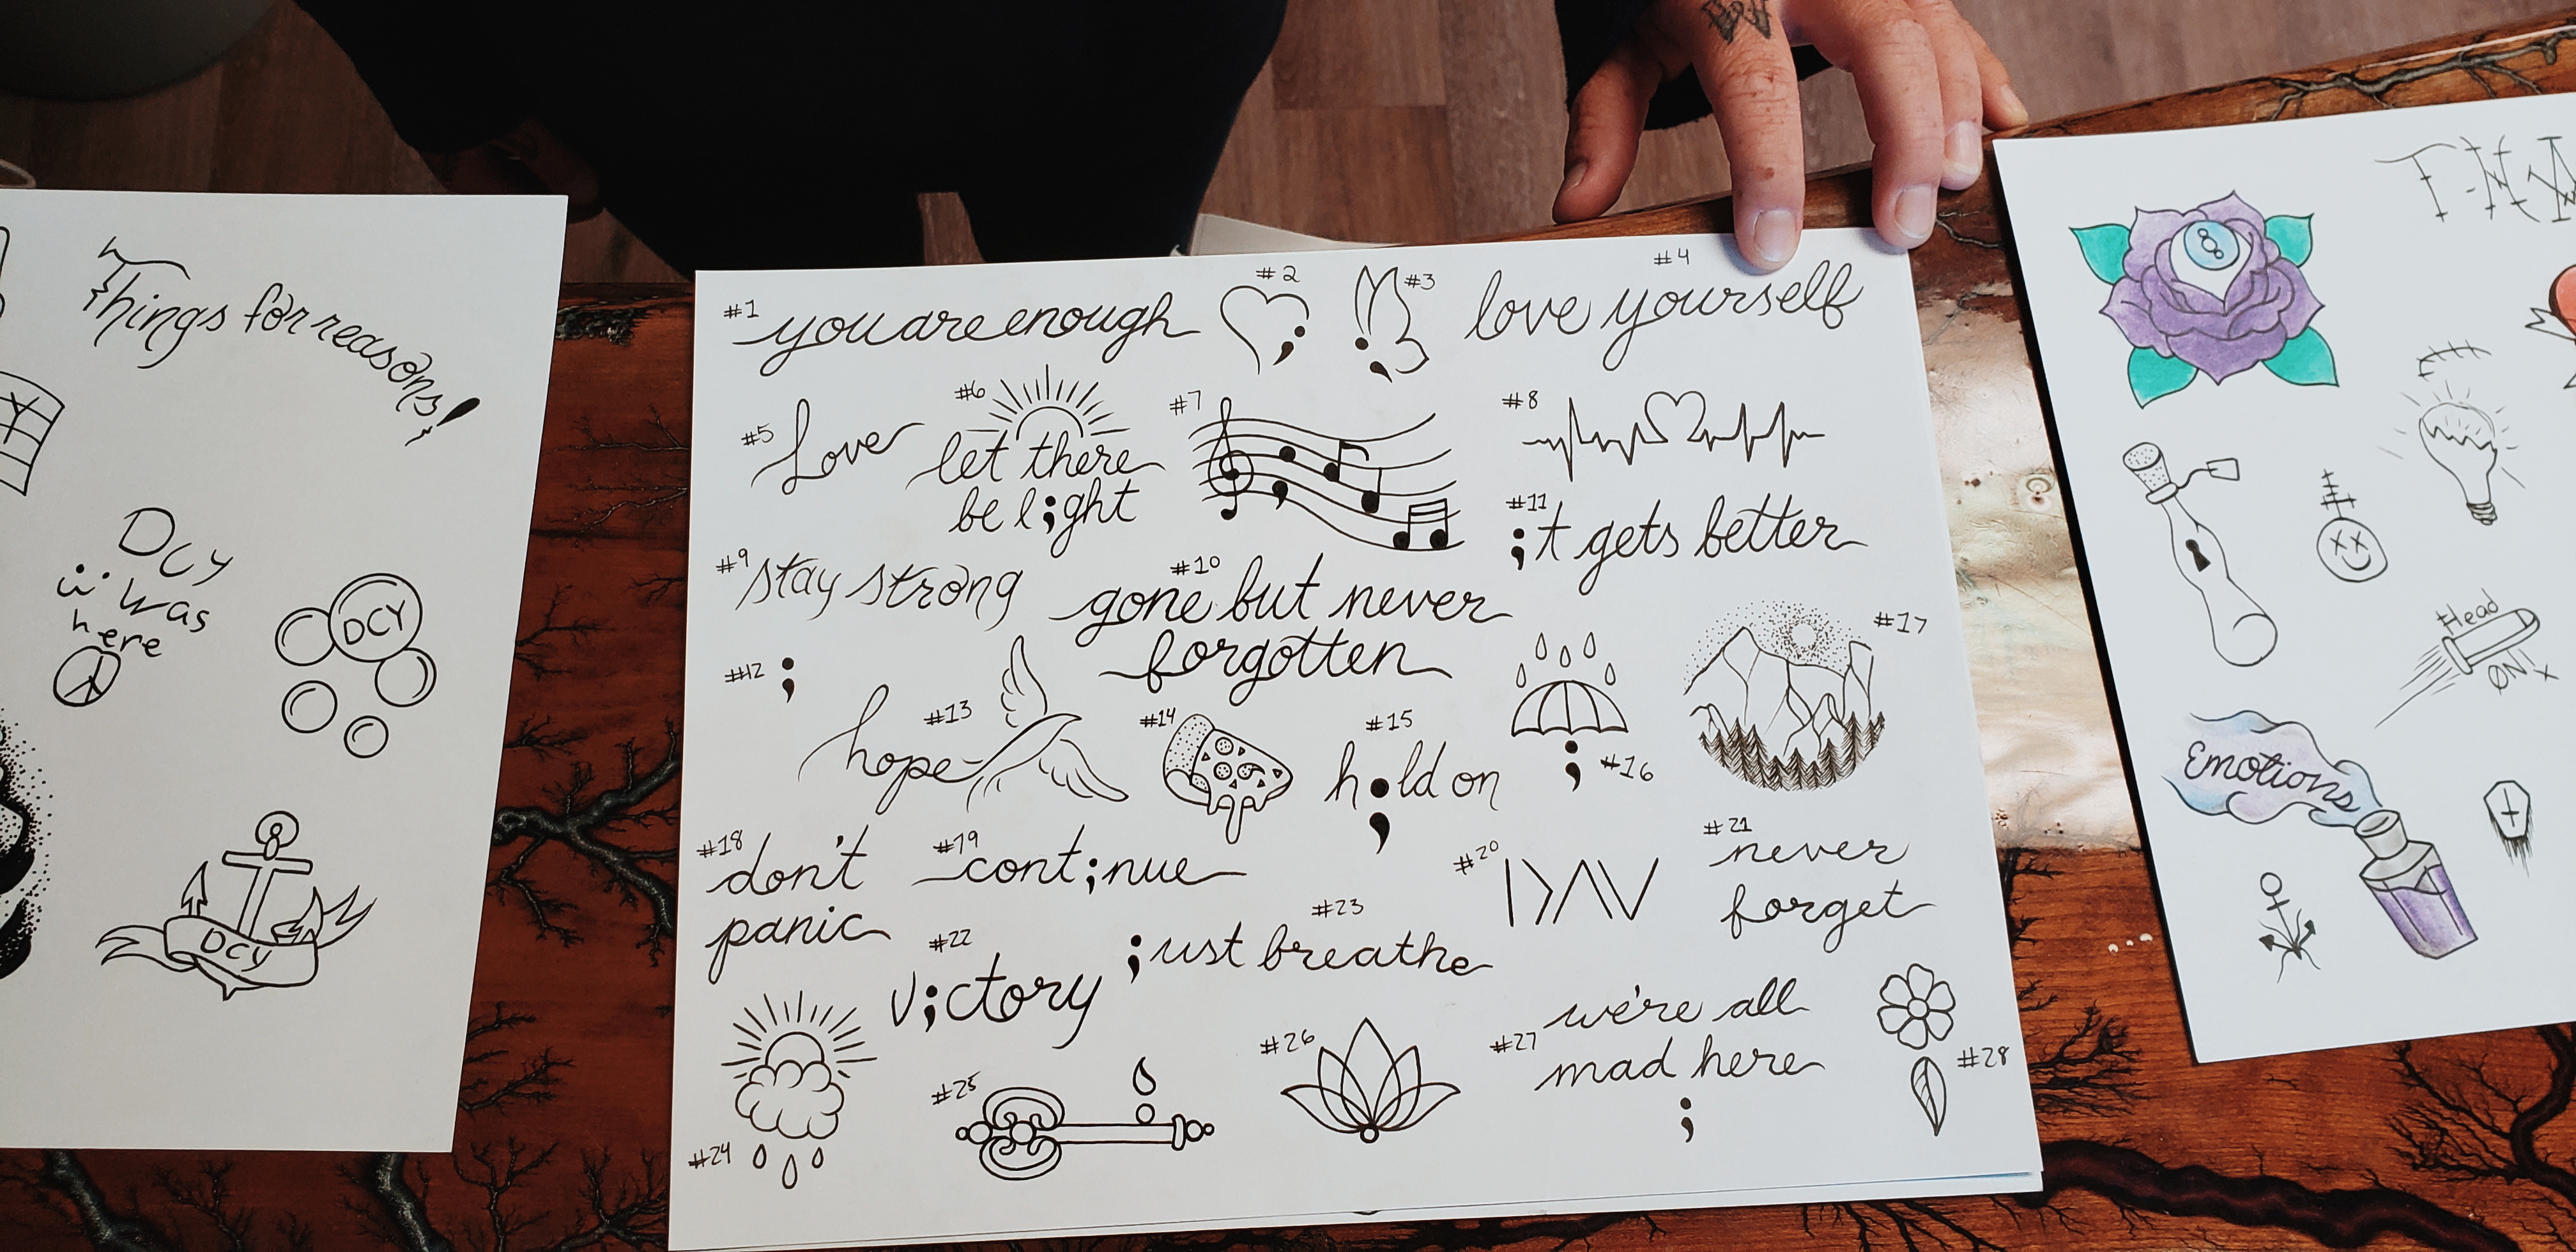 Things for reasons!
DCY
was
here
DCY
DCY
#1 you are enough
#2
#3
#4
love yourself
#5 Love
#6
let there
be l;ght
#7
#8
#9 stay strong
#10
gone but never
forgotten
#11
;t gets better
#12 ;
#13
hope
#14
#15
h;ld on
#16
;
#17
#18
don't
panic
#19
cont;nue
#20
#21
never
forget
#22
v;ctory
#23
;ust breathe
#24
#25
#26
#27
we're all
mad here
;
#28
8
Head
ON!
Emotions